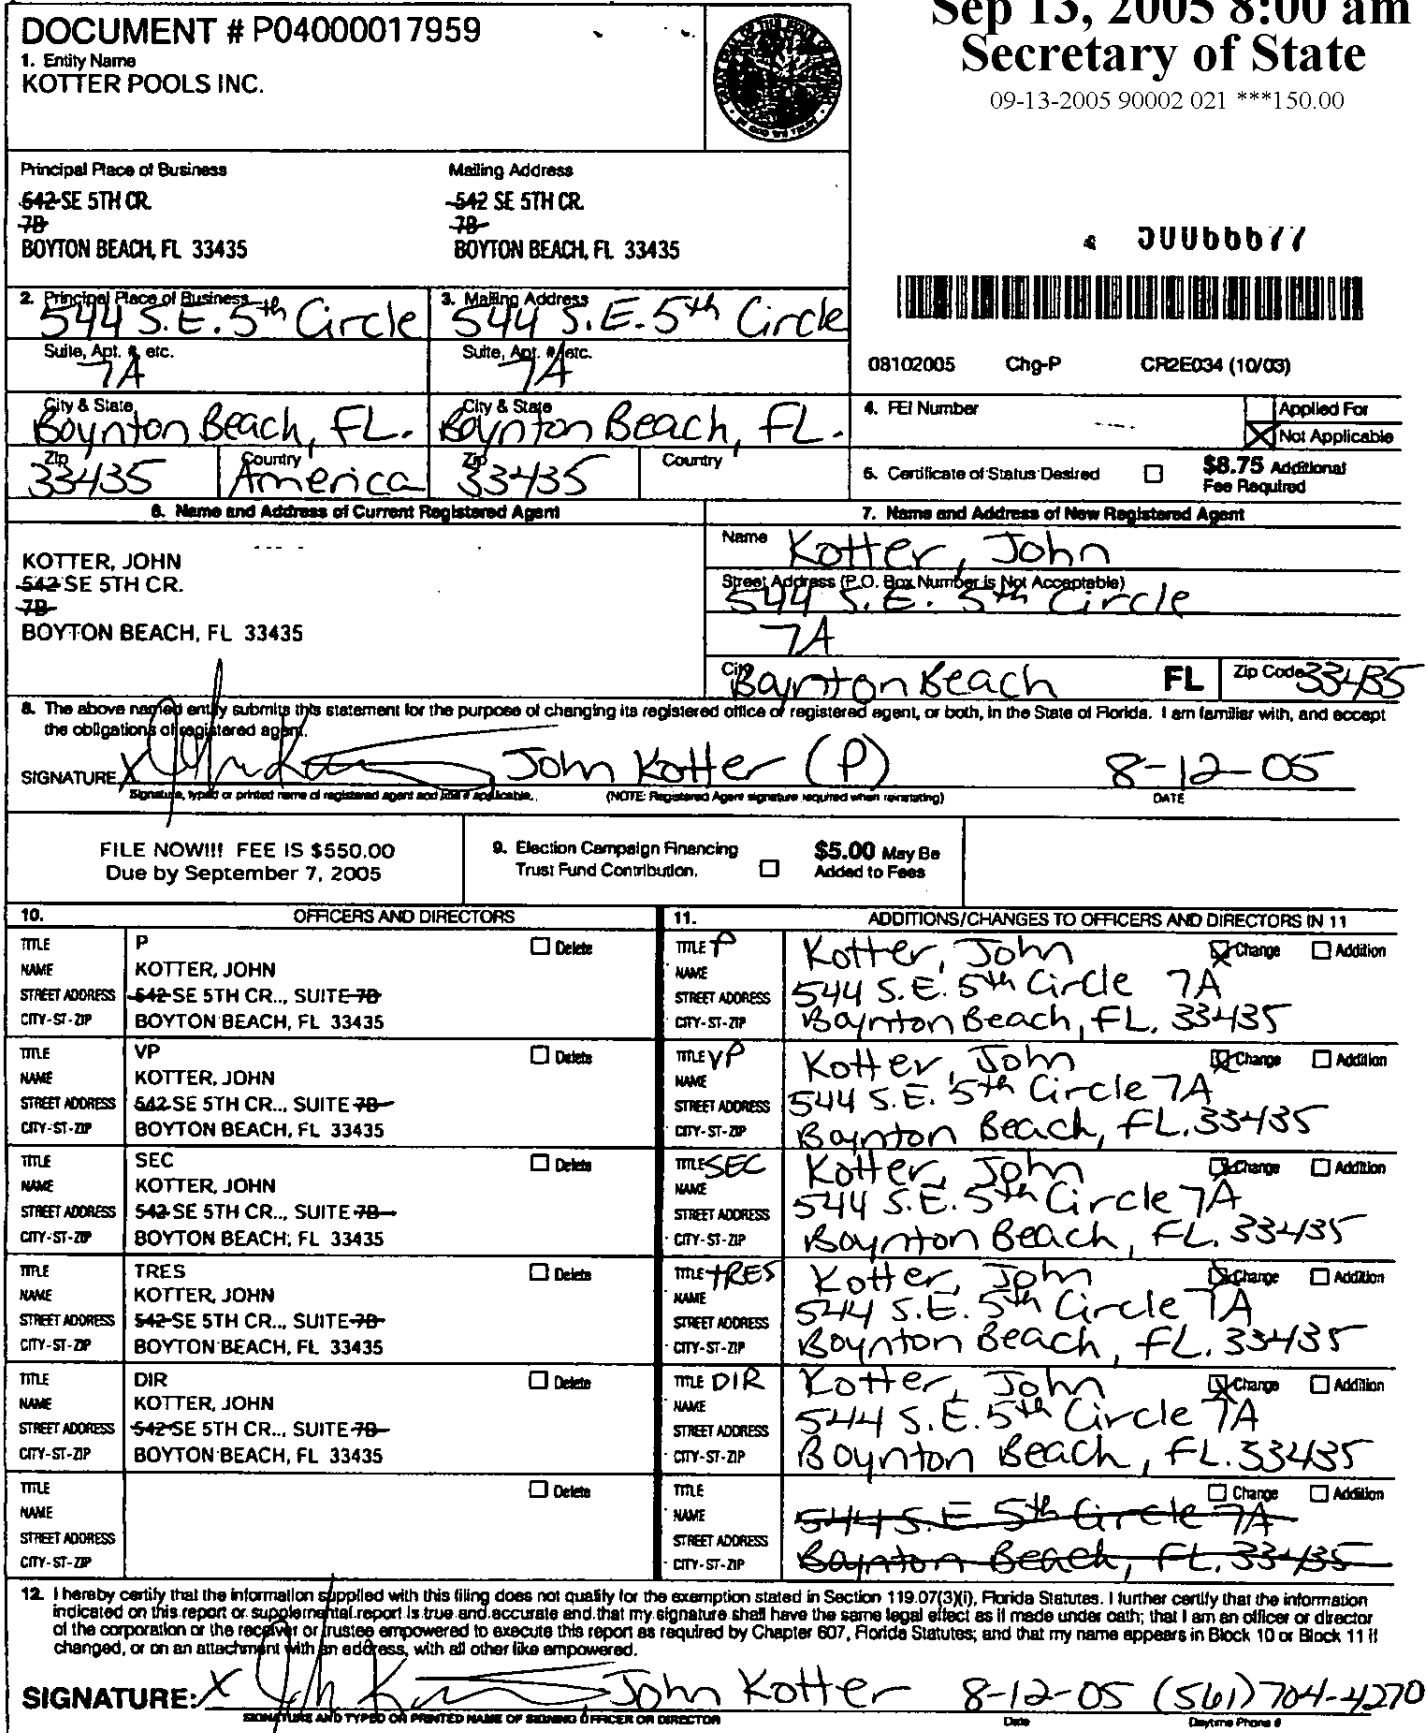 Sep 13, 2005 8:00 am
Secretary of State
09-13-2005 90002 021 ***150.00
DOCUMENT # P04000017959
1. Entity Name
KOTTER POOLS INC.
Principal Place of Business
542 SE 5TH CR.
7B
BOYTON BEACH, FL 33435
Mailing Address
542 SE 5TH CR.
7B
BOYTON BEACH, FL 33435
2. Principal Place of Business
544 S.E. 5th Circle
3. Mailing Address
544 S.E. 5th Circle
Suite, Apt. #, etc.
7A
Suite, Apt. #, etc.
7A
City & State
Boynton Beach, FL.
City & State
Boynton Beach, FL.
Zip
33435
Country
America
Zip
33435
Country
08102005 Chg-P CR2E034 (10/03)
4. FEI Number
Applied For
Not Applicable
5. Certificate of Status Desired
$8.75 Additional
Fee Required
6. Name and Address of Current Registered Agent
KOTTER, JOHN
542 SE 5TH CR.
7B
BOYTON BEACH, FL 33435
7. Name and Address of New Registered Agent
Name Kotter, John
Street Address (P.O. Box Number is Not Acceptable)
544 S.E. 5th Circle
7A
City Boynton Beach FL Zip Code 33435
8. The above named entity submits this statement for the purpose of changing its registered office or registered agent, or both, in the State of Florida. I am familiar with, and accept
the obligations of registered agent.
SIGNATURE X John Kotter (P) 8-12-05
Signature, typed or printed name of registered agent and title if applicable. (NOTE: Registered Agent signature required when reinstating) DATE
FILE NOW!!! FEE IS $550.00
Due by September 7, 2005
9. Election Campaign Financing
Trust Fund Contribution.
$5.00 May Be
Added to Fees
10. OFFICERS AND DIRECTORS
TITLE P Delete
NAME KOTTER, JOHN
STREET ADDRESS 542 SE 5TH CR.., SUITE 7B
CITY-ST-ZIP BOYTON BEACH, FL 33435
TITLE VP Delete
NAME KOTTER, JOHN
STREET ADDRESS 542 SE 5TH CR.., SUITE 7B
CITY-ST-ZIP BOYTON BEACH, FL 33435
TITLE SEC Delete
NAME KOTTER, JOHN
STREET ADDRESS 542 SE 5TH CR.., SUITE 7B
CITY-ST-ZIP BOYTON BEACH, FL 33435
TITLE TRES Delete
NAME KOTTER, JOHN
STREET ADDRESS 542 SE 5TH CR.., SUITE 7B
CITY-ST-ZIP BOYTON BEACH, FL 33435
TITLE DIR Delete
NAME KOTTER, JOHN
STREET ADDRESS 542 SE 5TH CR.., SUITE 7B
CITY-ST-ZIP BOYTON BEACH, FL 33435
TITLE Delete
NAME
STREET ADDRESS
CITY-ST-ZIP
11. ADDITIONS/CHANGES TO OFFICERS AND DIRECTORS IN 11
TITLE P Kotter, John Change Addition
NAME
STREET ADDRESS 544 S.E. 5th Circle 7A
CITY-ST-ZIP Boynton Beach, FL. 33435
TITLE VP Kotter, John Change Addition
NAME
STREET ADDRESS 544 S.E. 5th Circle 7A
CITY-ST-ZIP Boynton Beach, FL. 33435
TITLE SEC Kotter, John Change Addition
NAME
STREET ADDRESS 544 S.E. 5th Circle 7A
CITY-ST-ZIP Boynton Beach, FL. 33435
TITLE TRES Kotter, John Change Addition
NAME
STREET ADDRESS 544 S.E. 5th Circle 7A
CITY-ST-ZIP Boynton Beach, FL. 33435
TITLE DIR Kotter, John Change Addition
NAME
STREET ADDRESS 544 S.E. 5th Circle 7A
CITY-ST-ZIP Boynton Beach, FL. 33435
TITLE Change Addition
NAME 544 S.E 5th Circle 7A
STREET ADDRESS
CITY-ST-ZIP Boynton Beach, FL. 33435
12. I hereby certify that the information supplied with this filing does not qualify for the exemption stated in Section 119.07(3)(i), Florida Statutes. I further certify that the information
indicated on this report or supplemental report is true and accurate and that my signature shall have the same legal effect as if made under oath; that I am an officer or director
of the corporation or the receiver or trustee empowered to execute this report as required by Chapter 607, Florida Statutes; and that my name appears in Block 10 or Block 11 if
changed, or on an attachment with an address, with all other like empowered.
SIGNATURE: X John Kotter 8-12-05 (561) 704-4270
SIGNATURE AND TYPED OR PRINTED NAME OF SIGNING OFFICER OR DIRECTOR Date Daytime Phone #